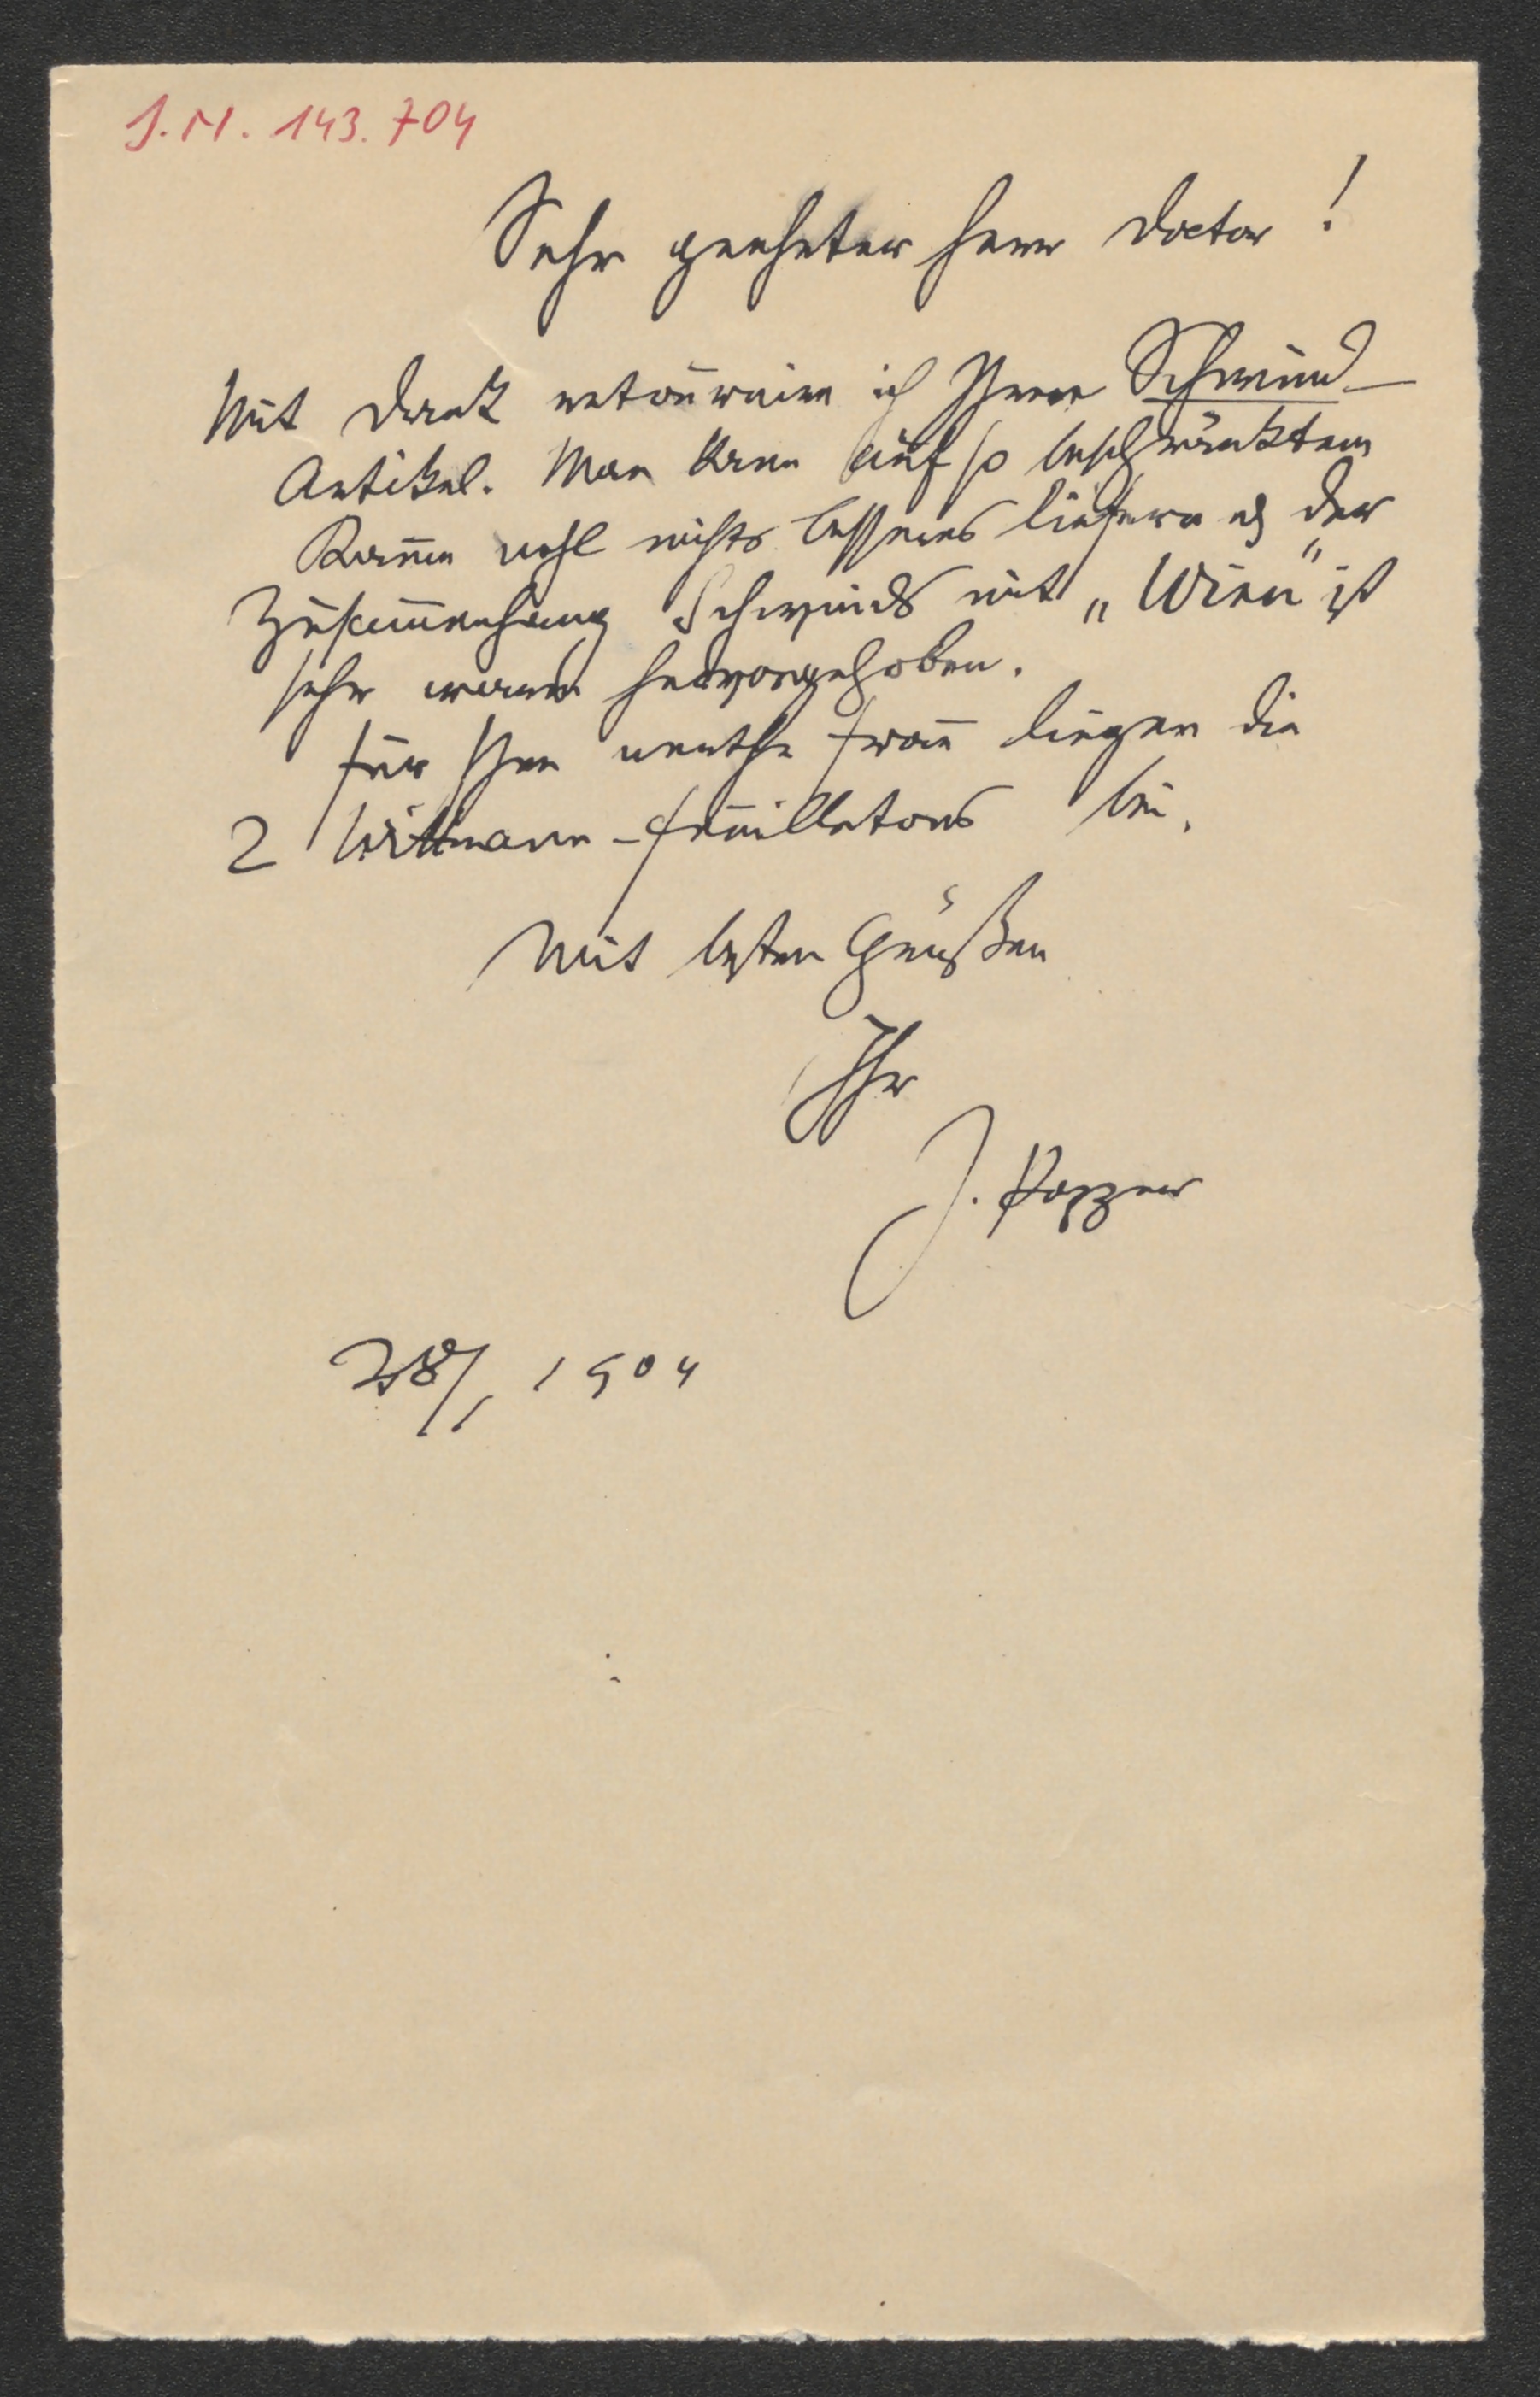 J.N. 143.704
Sehr geehrter Herr Doctor!
Mit Dank retournire ich Ihren Schwind-
Artikel. Man kann auf so beschränktem
Raum wohl nichts besseres liefern als der
Zusam̅enhang Schwinds mit „Wien" ist
sehr warm hervorgehoben.
Für Ihre werthe Frau liegen die
2 Wittmann-Feuilletons bei.
Mit besten Grüßen
Ihr
J. Popper
28/1 1904